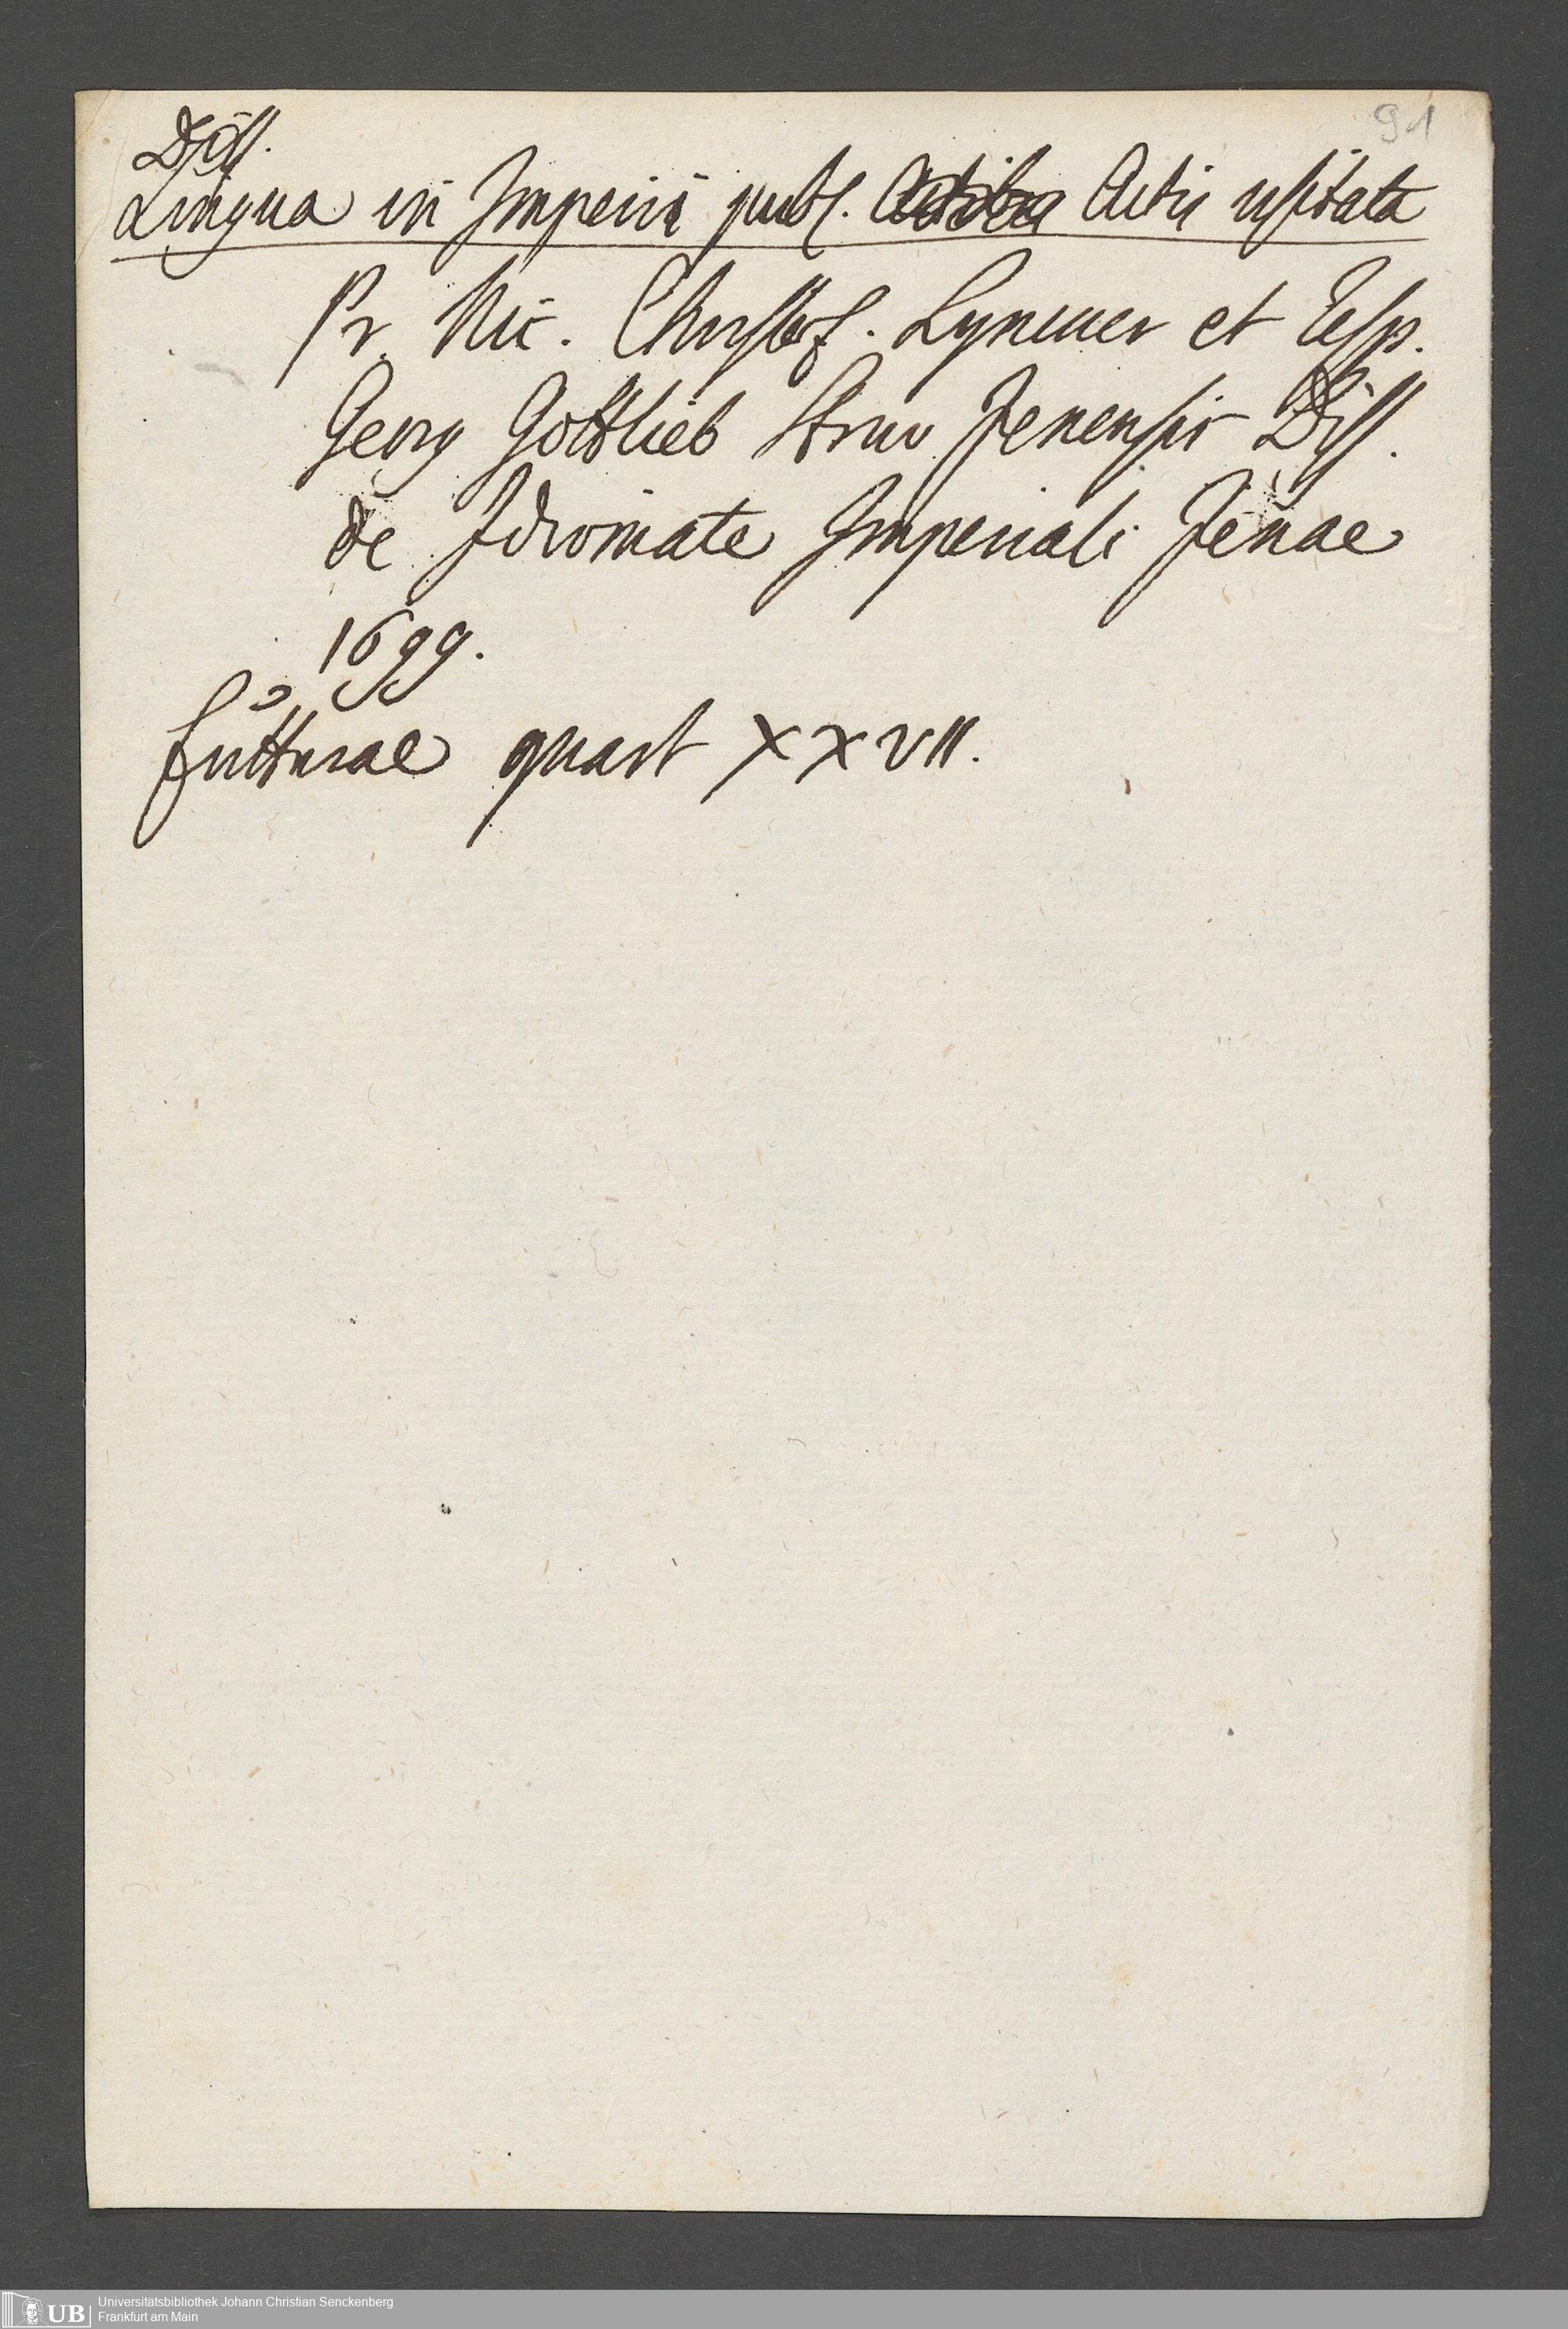 91
Diss.
Lingua in Imperii publ. Actis usitata
Pr. Nic. Christof. Lyncker et Resp.
Georg Gottlieb Struv Jenensis Diss.
de Idiomate Imperiali Jenae
1699.
quart XXVII.
UB Universitätsbibliothek Johann Christian Senckenberg
Frankfurt am Main